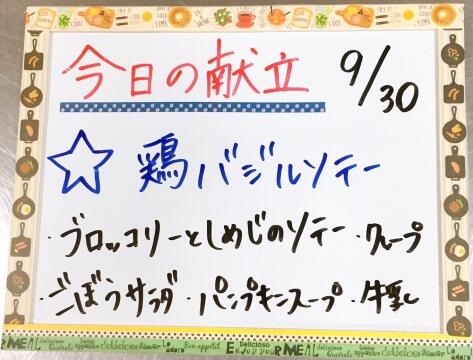 今日の献立 9/30
☆ 鶏バジルソテー
・ブロッコリーとしめじのソテー ・クレープ
・ごぼうサラダ ・パンプキンスープ ・牛乳
Delicioso
ENJOY YOUR MEAL